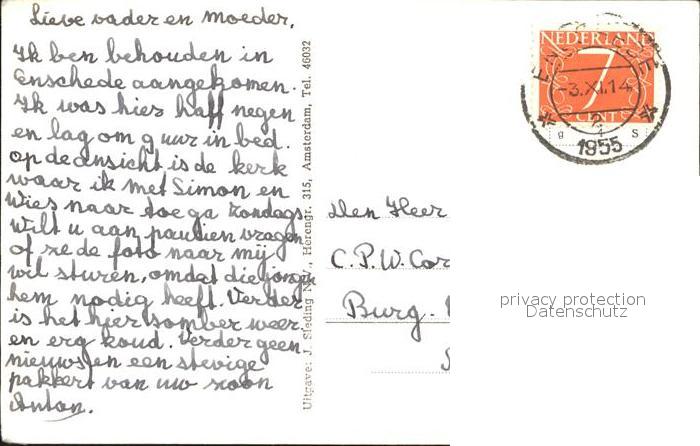 Lieve vader en Moeder,
Ik ben behouden in
Enschede aangekomen.
Ik was hier half negen
en lag om 9 uur in bed.
op de ansicht is de kerk
waar ik met Simon en
Wies naar toe ga Zondags.
Wilt u aan paulien vragen
of ze de foto naar mij
wil sturen, omdat die jongen
hem nodig heeft. Verder
is het hier somber weer.
en erg koud. Verder geen
nieuws en een stevige
pakkert van uw zoon
Anton.
Uitgave: J. Sleding N.V., Herengr. 315, Amsterdam, Tel. 46032
NEDERLAND
7
CENT
-3.XI.14
1955
g S
Den Heer
C.P.W. Cor
Burg.
privacy protection
Datenschutz